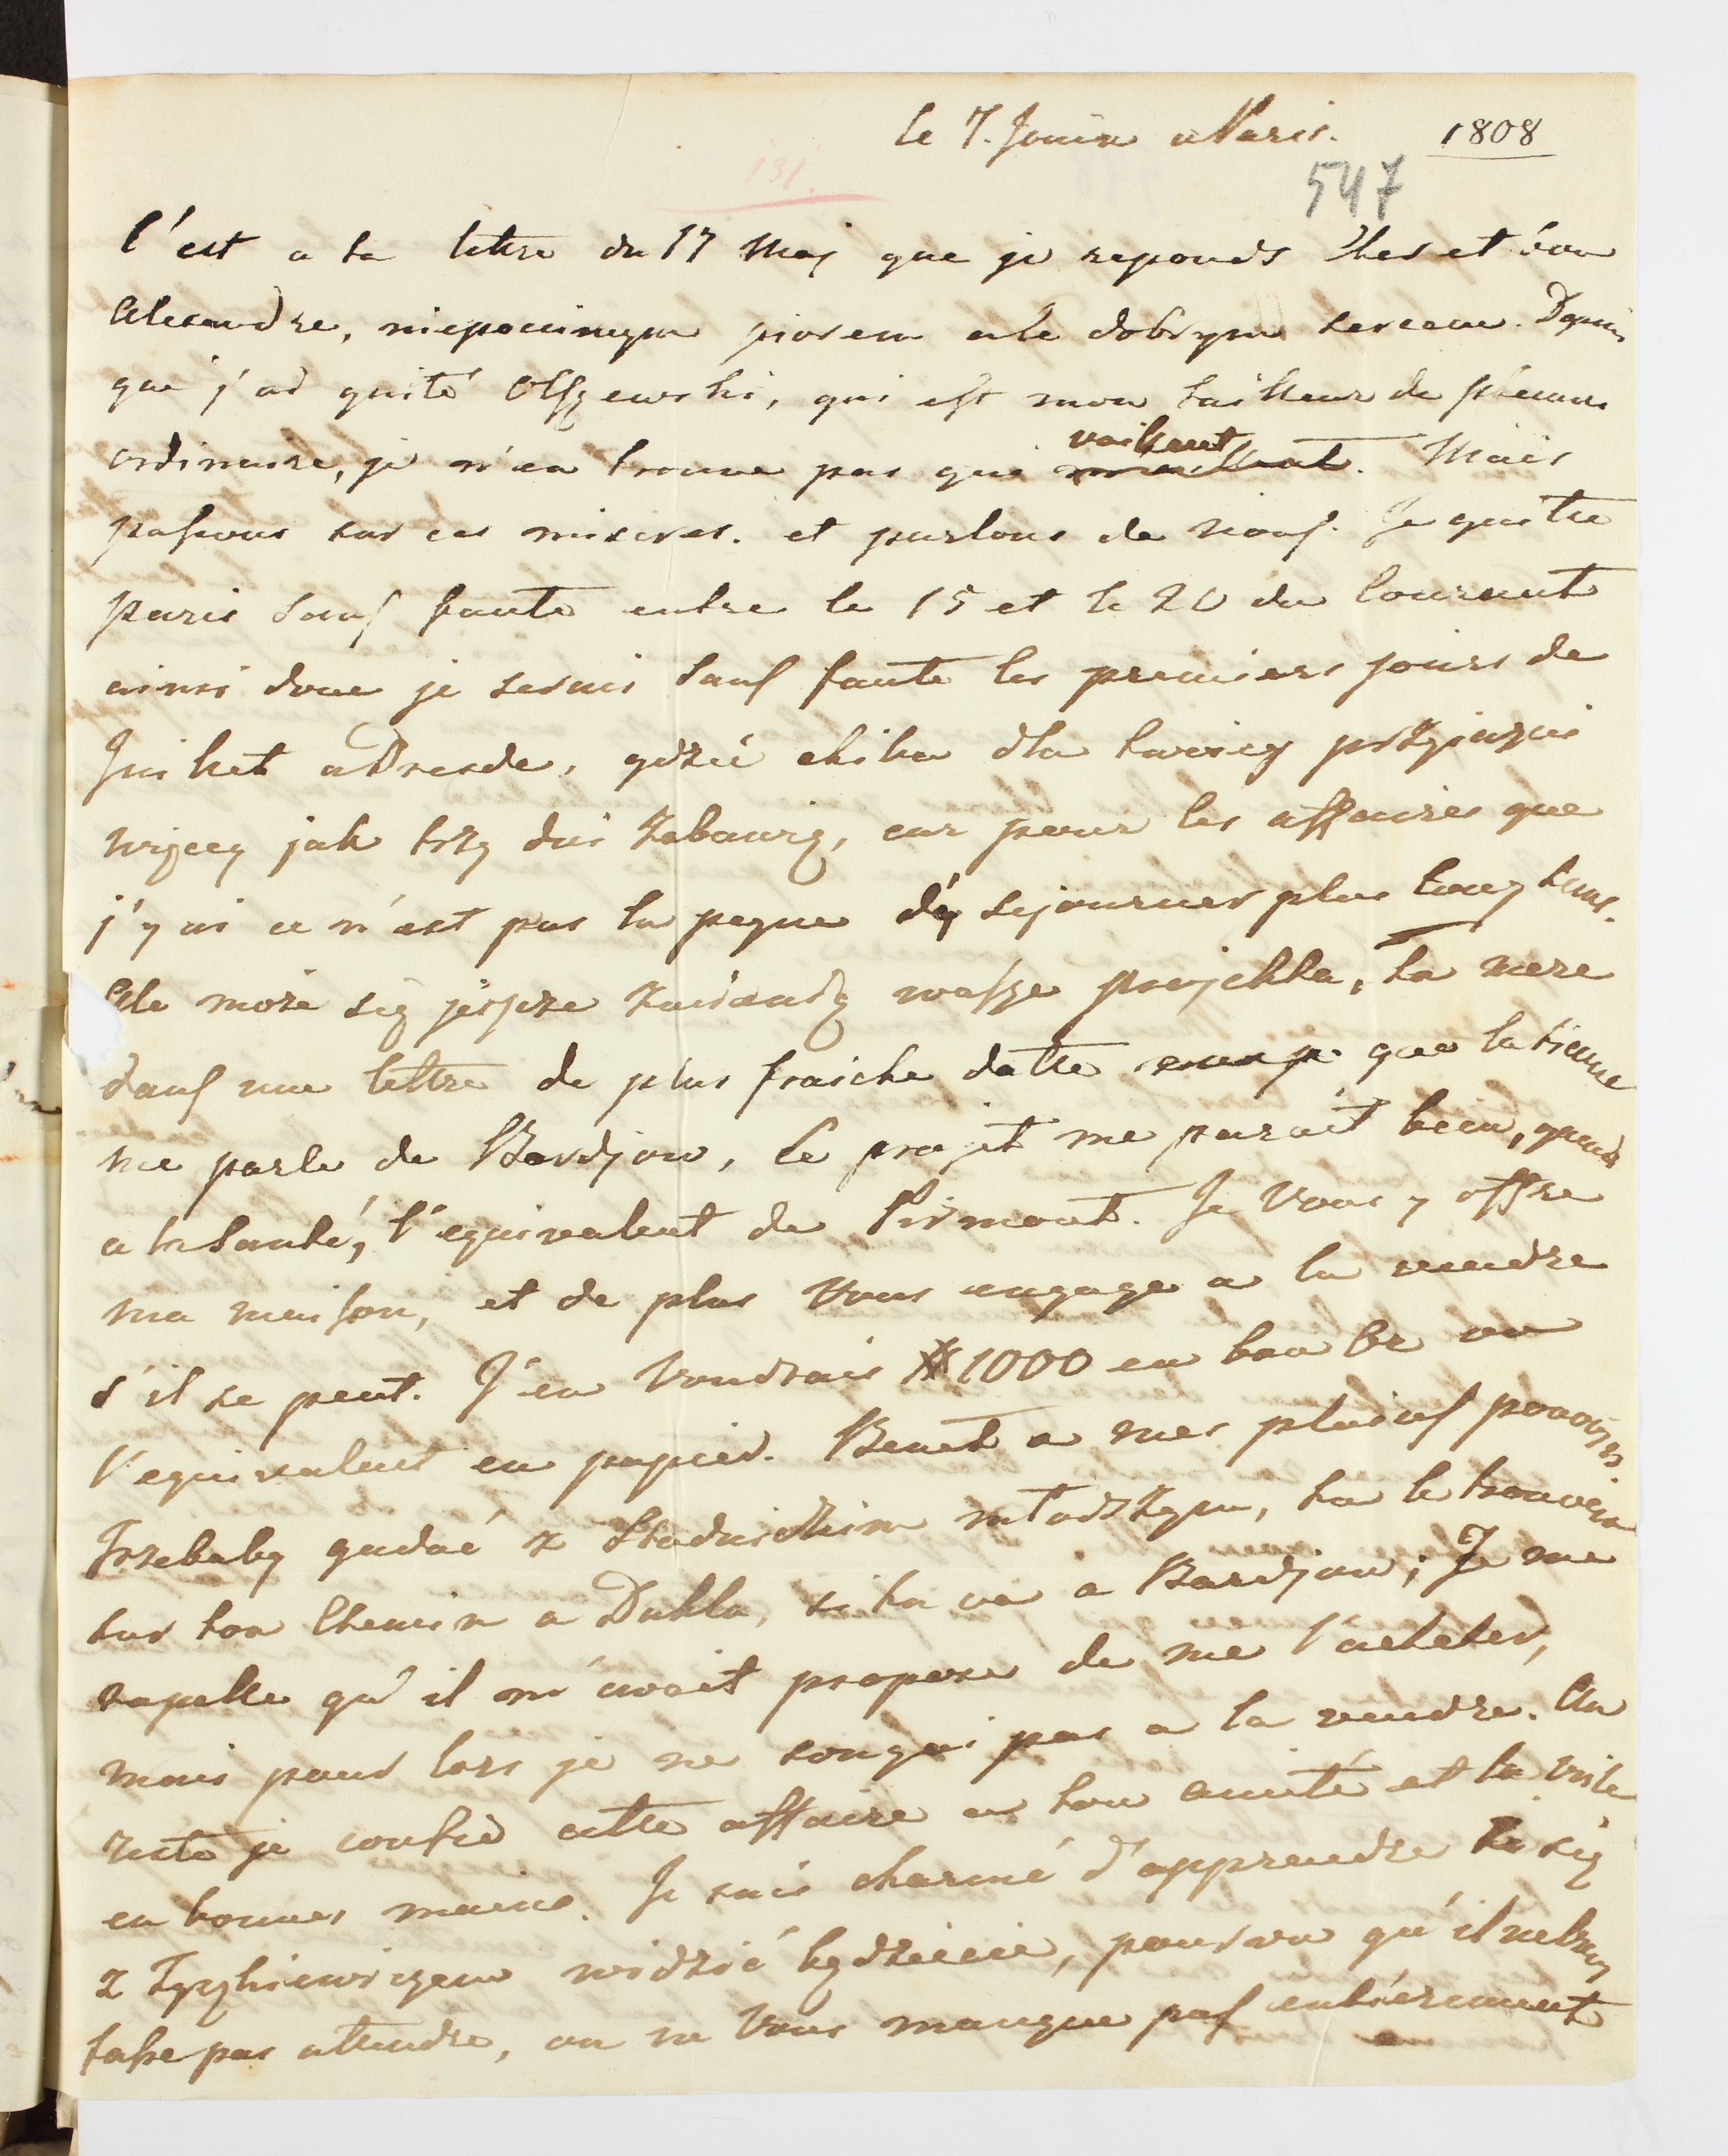 le 7. Jouin a Paris. 1808
131.
547
C'est a ta lettre du 17 Maj que je reponds Cher et bon
Alexandre, niepoccinuym piorem ale dobrym sercem. Depuis
que j'ai quité Olszewski, qui est mon tailleur de plumes
ordinaire, je n'en trouve pas qui vaillent. Mais
passons sur ces miseres. et parlons de nous. Je quitte
Paris sauf faute entre le 15 et le 20 du Courant
ainsi donc je serais sauf faute les premiers jours de
Juillet a Dresde, gdzie chiba dla twoiey przyjazni
więcey jak trzy dni zabawię, car pour les affaires que
j'y ai ce n'est pas la pegne d'y sejourner plus long tems.
Ale może się jeszcze zmianią wasze projekta, ta mere
dans une lettre de plus fraiche datte que la tienne
me parle de Bardjow, le projet me parait bien, quand
a la santé, l'equivalent de Pirmont. Je Vous y offre
ma maison, et de plus Vous engage a la vendre
s'il se peut. J'en Voudrais # 1000 en bon or ou
l'equivalent en papier. Benet a mes pleins pouvoirs.
Trzebaby gadać z Stadnickim młodszym, tu le trouvera
sur ton Chemin a Dukla, si tu va a Bardjow; Je me
rapelle qu'il m'avoit propose de me l'acheter,
mais pour lors je ne songai pas a la vendre. Au
reste je confie cette affaire a ton amitié et la voila
en bonnes mains. Je suis charmé d'apprendre że się
z Tyszkiewiczem widzić będziecie, pourvu qu'il ne
fasse pas attendre, on ne Vous manque pas entièrement